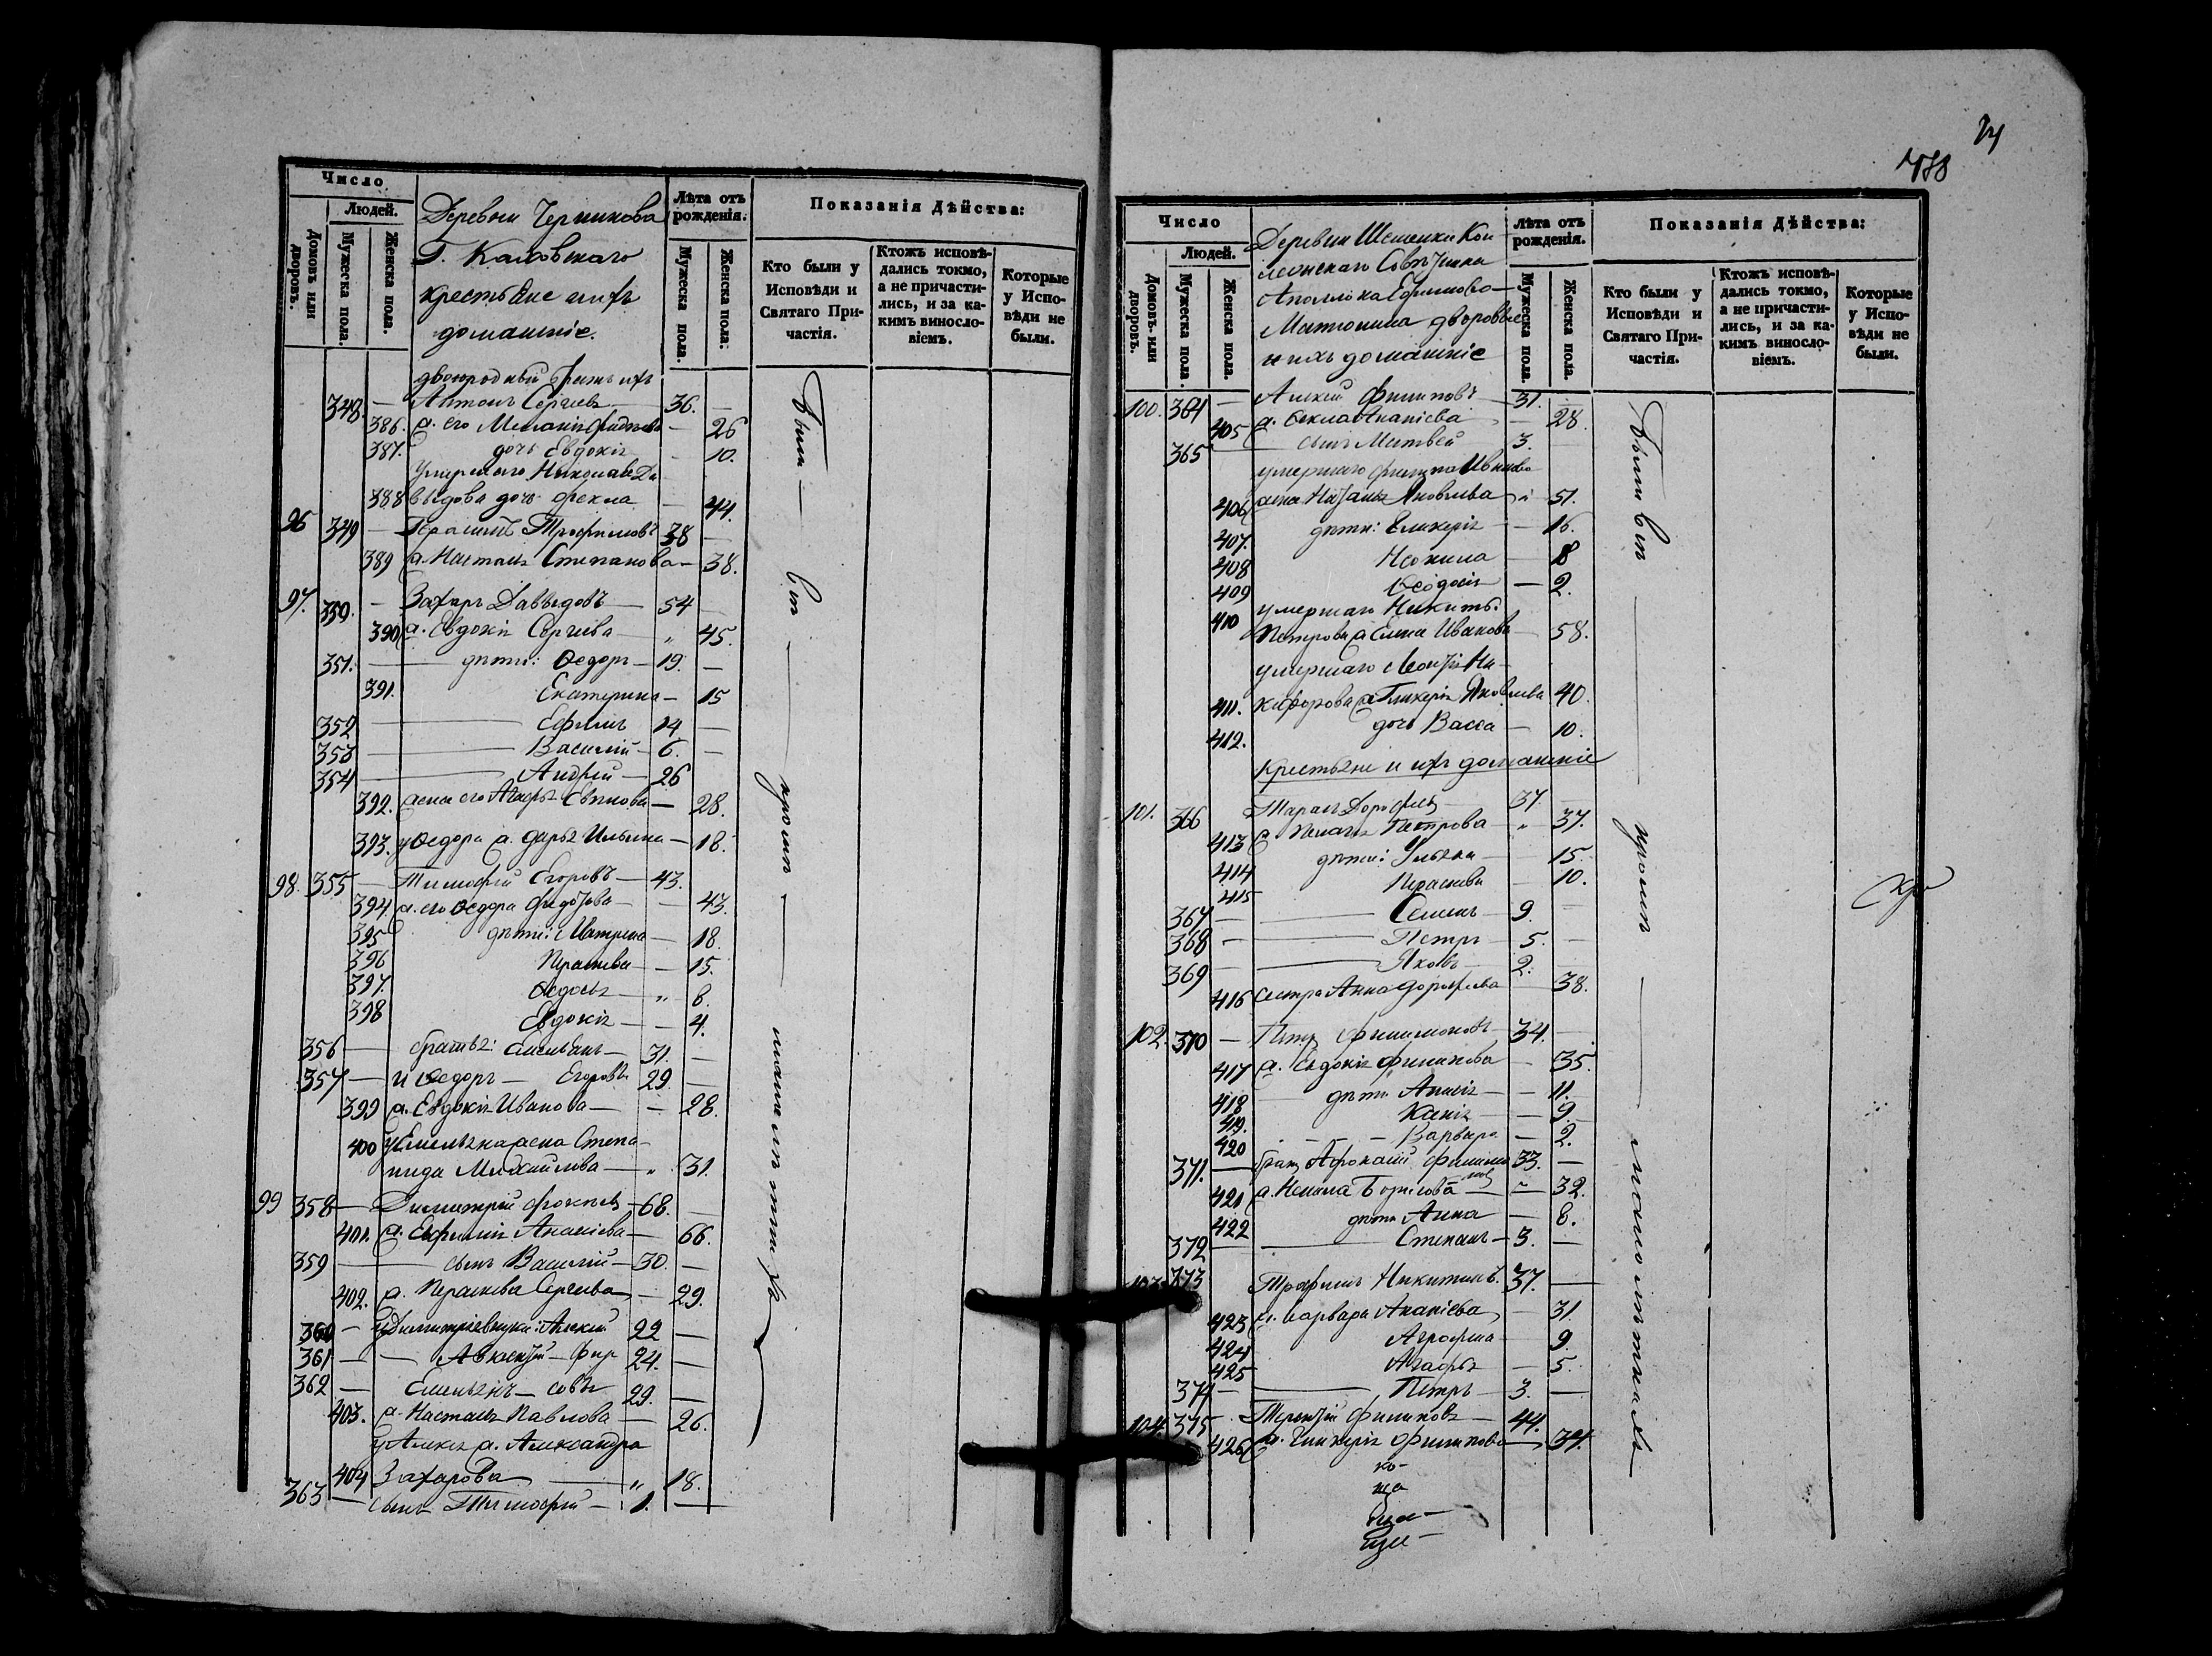 Число
Людей.
Домовъ или дворовъ.
Мужеска пола.
Женска пола.
Деревни Черникова
Г. Каловскаго
крестьяне и ихъ
домашніе.
Лѣта отъ рожденія.
Мужеска пола.
Женска пола.
Показанія Дѣйства:
Кто были у Исповѣди и Святаго Причастія.
Ктожъ исповѣ-
дались токмо,
а не причасти-
лись, и за ка-
кимъ винosло-
віемъ.
Которые
у Испо-
вѣди не
были.
двоюродный братъ ихъ
348. — Антонъ Сергѣевъ — 36. —
386. ж. его Меланія — 26
387. дочь Евдокія — 10.
умершаго Николая Да
388 выдова дочь Фекла — 44.
96 349 — Герасимъ Трофимовъ 38 —
389 ж. Настасья Степанова — 38.
97. 350. — Захаръ Давыдовъ — 54 —
390 ж. Евдокія Сергѣева — „ 45.
351. — дѣти: Ѳедоръ — 19. —
391. Екатерина — 15
352 — Ефимъ 14 —
353 — Василій — 6. —
354 — Андрей — 26
392. жена его Агафья — 28.
393. у Ѳедора ж. Дарья Ильина — 18.
98. 355 — Тимофей Егоровъ — 43.
394. ж. его Ѳедора Федотова — 43.
395 дѣти: Матрена — 18.
396 Параскева — 15.
397. Ѳедосья — „ 8.
398 Евдокія — 4.
356 — братья: Емельянъ — 31. —
357 — и Ѳедоръ — Егоровы 29 —
399 ж. Евдокія Иванова — — 28.
400 у Емельяна жена Степа-
нида Михайлова — „ 31.
99 358 — Димитрій — 68. —
401. ж. Евфимія Ананіева — 66.
359 — сынъ Василій — 30. —
402. ж. Параскева Сергѣева — 29.
360 — у Димитрія внуки: Алексѣй 22 —
361 — — Авксентій — Фир 24. —
362 — Емельянъ — совы 29. —
403. ж. Настасья Павлова — 26.
у Алексѣя ж. Александра
404 Захарова — „ 18.
363 — сынъ Тимофей — 1. —
Были — вси — кромѣ — малолѣтнихъ
438
Число
Людей.
Домовъ или дворовъ.
Мужеска пола.
Женска пола.
Деревни Кол-
лежскаго Совѣтника
Аполлона Ефимова
Матюнина дворовые
и ихъ домашніе
Лѣта отъ рожденія.
Мужеска пола.
Женска пола.
Показанія Дѣйства:
Кто были у Исповѣди и Святаго Причастія.
Ктожъ исповѣ-
дались токмо,
а не причасти-
лись, и за ка-
кимъ виносло-
віемъ.
Которые
у Испо-
вѣди не
были.
100. 364 — Алексѣй Филиповъ — 31. —
405 ж. Ѳекла Ананіева — 28.
365 — сынъ Матвей 3.
умершаго Филипа Иванова
406 жена Наталья Яковлева „ 51.
407. дѣти: Гликерія — 16.
408 Неонила — 8
409 Ѳеодосія — 2.
410 умершаго Никиты
Петрова ж. Елена Иванова — 58.
умершаго Ни-
411. кифорова ж. Гликерія Яковлева 40.
412. дочь Васса — 10.
Крестьяне и ихъ домашніе
101. 366 Тарасъ Дорофеевъ — 37.
413 ж. Пелагея Петрова — „ 37.
414 дѣти: Ульяна — 15.
415 Параскева — 10.
367 — Семенъ 9. —
368 — Петръ — 5. —
369 — Яковъ — 2.
416 сестра Анна Дорофеева 38.
102. 370 — Петръ Филимоновъ 34. —
417 ж. Евдокія Филипова — 35.
418 дѣти Анисія — 11.
419. Ксенія — 9.
420 Варвара — 2.
371. — братъ Филимо 33. —
новъ
421 ж. Ненила Борисова — „ 32.
422 дѣти Анна — 8.
372 — Степанъ — 3. —
103 373 Трофимъ Никитинъ. 37. —
423 ж. Варвара Ананіева — 31
424 Агрофена 9.
425 Агафья — 5.
374 — Петръ — 3. —
104. 375 — Терентій Филиповъ — 44.
426 ж. Гликерія Филипова — 34.
Были вси — кромѣ — малолѣтнихъ